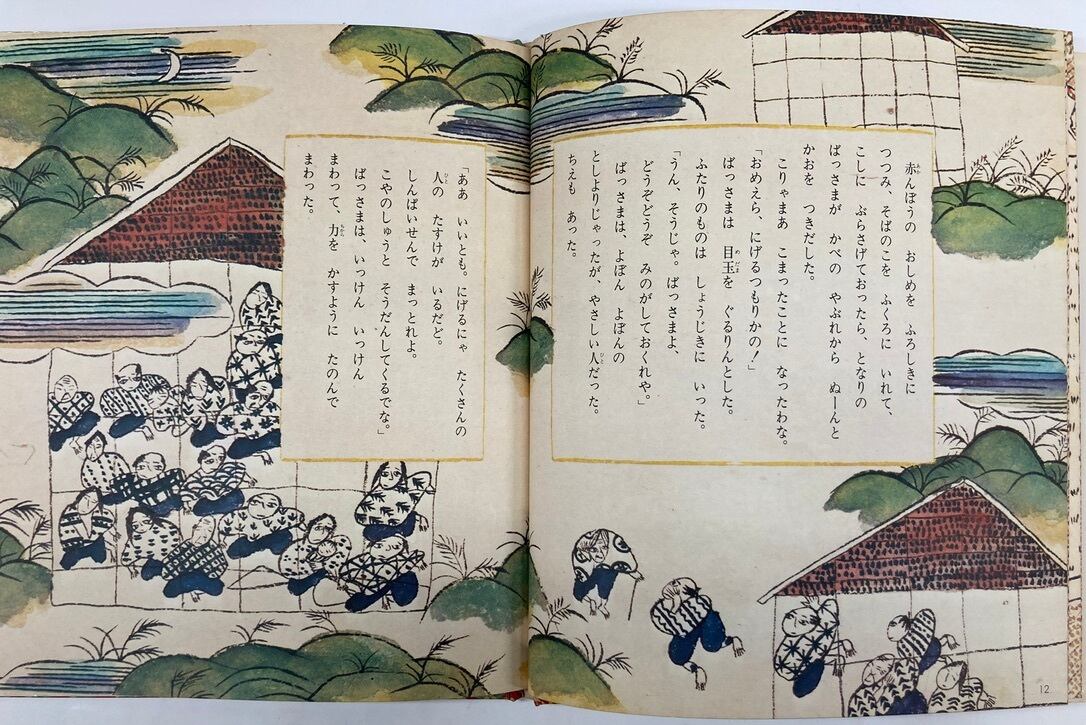 赤んぼうの　おしめを　ふろしきに
つつみ、そばのこを　ふくろに　いれて、
こしに　ぶらさげておったら、となりの
ばっさまが　かべの　やぶれから　ぬーんと
かおを　つきだした。
こりゃまあ　こまったことに　なったわな。
「おめえら、にげるつもりかの！」
ばっさまは　目玉を　ぐるりんとした。
ふたりのものは　しょうじきに　いった。
「うん、そうじゃ。ばっさまよ、
どうぞどうぞ　みのがしておくれや。」
ばっさまは、よぼん　よぼんの
としよりじゃったが、やさしい人だった。
ちえも　あった。
「ああ　いいとも。にげるにゃ　たくさんの
人の　たすけが　いるだど。
しんぱいせんで　まっとれよ。
こやのしゅうと　そうだんしてくるでな。」
ばっさまは、いっけん　いっけん
まわって、力を　かすように　たのんで
まわった。
12